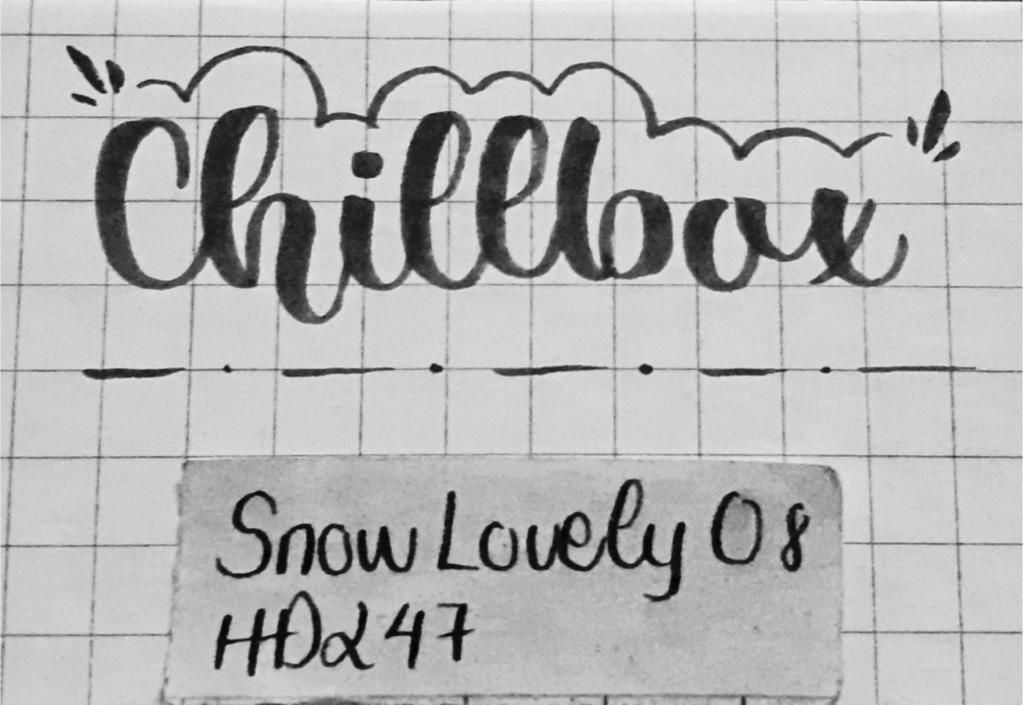 Chillbox
Snow Lovely 08
HD247